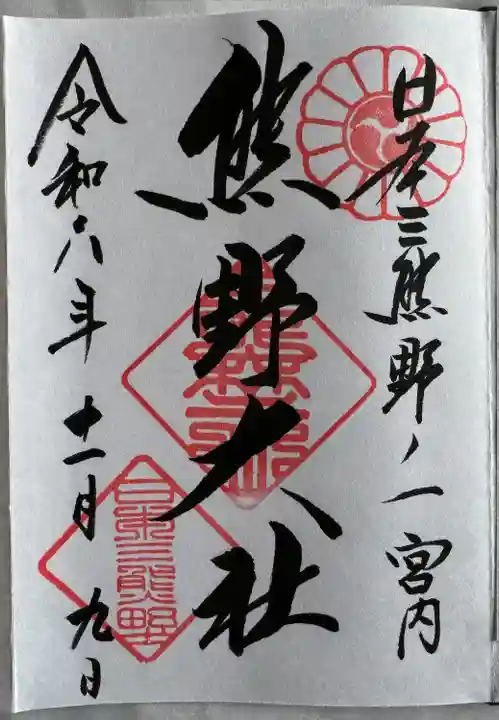 日本三熊野ノ一 宮内
熊野大社
令和六年 十一月 九日
日本三熊野